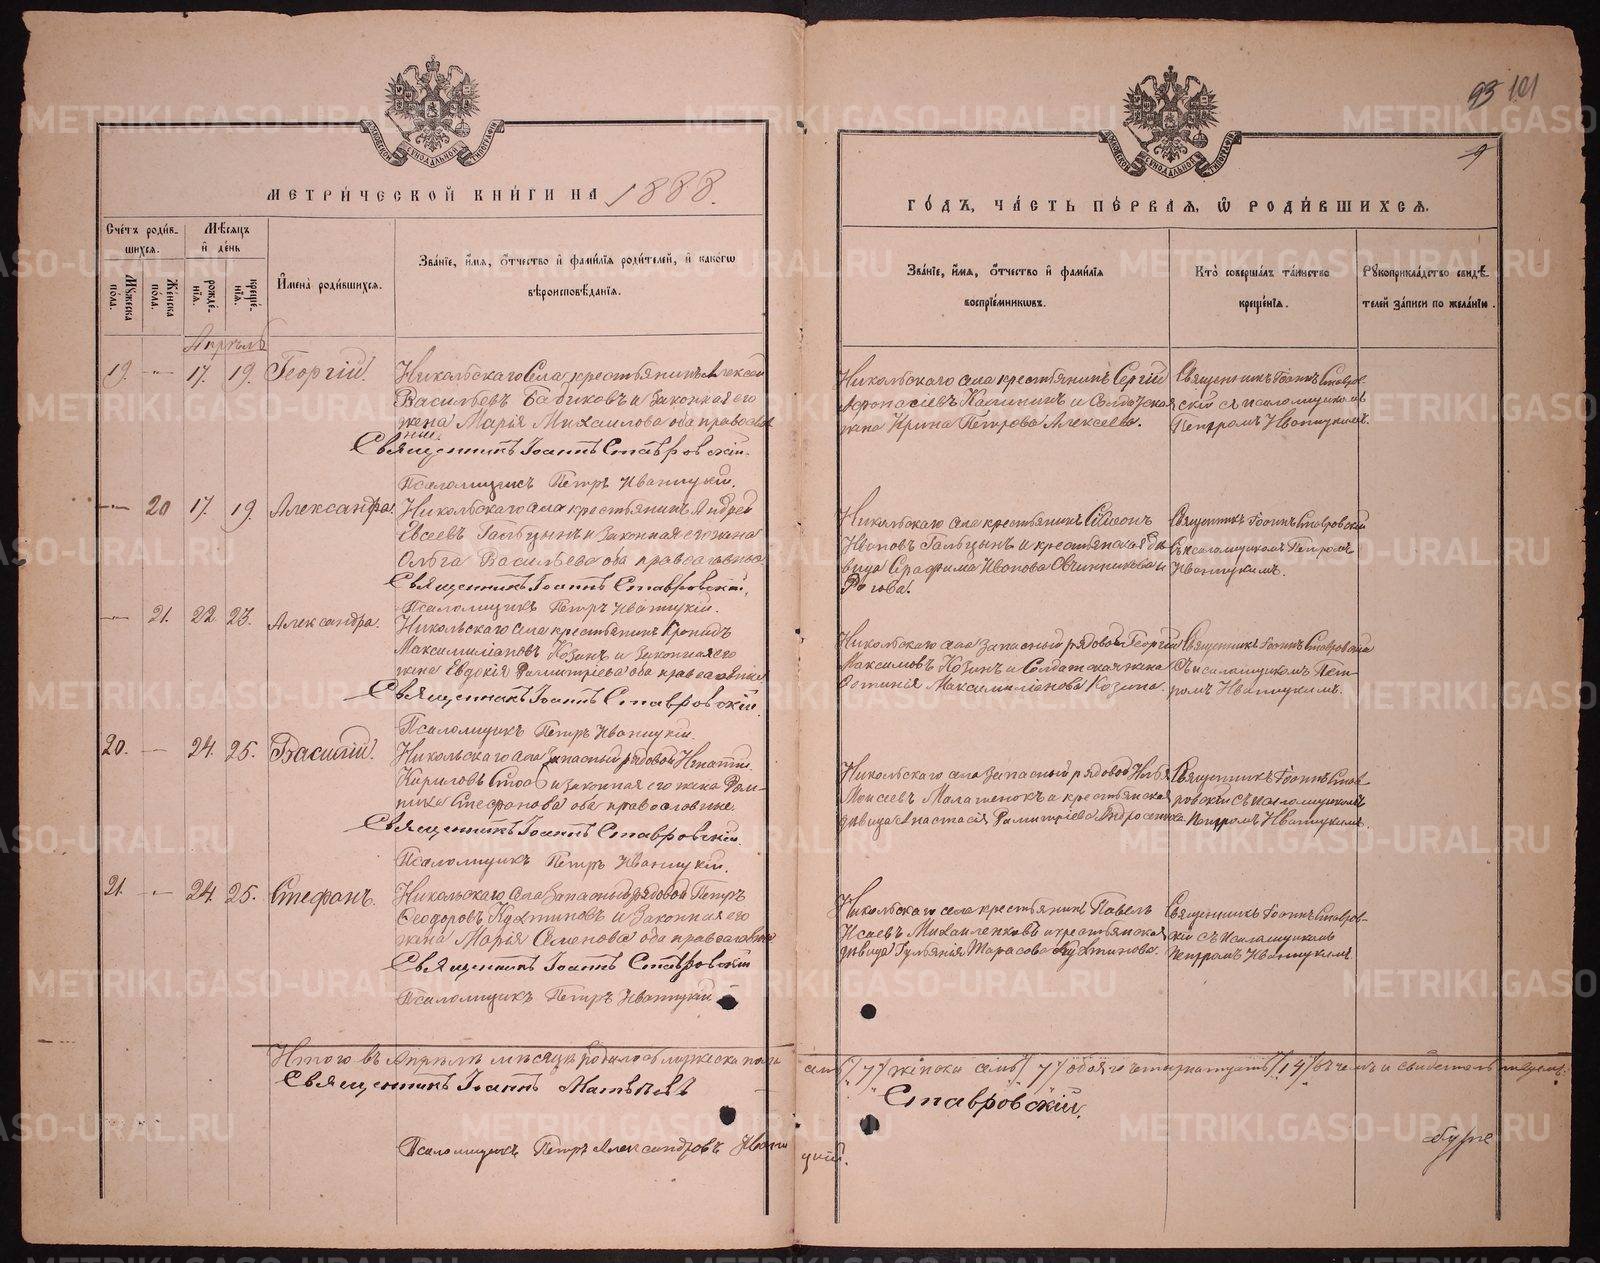 МЕТРИЧЕСКОЙ КНИГИ НА 1888.
Счетъ родившихся.
Мѣсяцъ и день
Имена родившихся.
Званіе, имя, отчество и фамилія родителей, и какогѡ
вѣроисповѣданія.
Мужеска пола.
Женска пола.
рожденія.
крещенія.
Апрѣль
19. — 17. 19. Георгій.
Никольскаго Села крестьянинъ Алексѣй
Васильевъ Бабиковъ и законная его
жена Марія Михаилова оба православ
ніи.
Священникъ Іоаннъ Ставровскій.
Псаломщикъ Петръ Иваницкій.
— 20 17. 19. Александра.
Никольскаго села крестьянинъ Андрей
Евсеевъ Гальцынъ и законная его жена
Ольга Васильева оба православные
Священникъ Іоаннъ Ставровскій,
Псаломщикъ Петръ Иваницкій.
— 21. 22 23. Александра.
Никольскаго села крестьянинъ
Максимиліановъ Козинъ и законная его
жена Евдокія Димитріева оба православные
Священникъ Іоаннъ Ставровскій.
Псаломщикъ Петръ Иваницкій.
20. — 24. 25. Василій.
Никольскаго села запасный рядовой Игнатій
Кириловъ и законная его жена
Стефанова оба православные.
Священникъ Іоаннъ Ставровскій.
Псаломщикъ Петръ Иваницкій.
21. — 24. 25. Стефанъ.
Никольскаго села запасный рядовой Петръ
Ѳеодоровъ Кухтиновъ и законная его
жена Марія Семенова оба православные
Священникъ Іоаннъ Ставровскій
Псаломщикъ Петръ Иваницкій
Итого въ Апрѣлѣ мѣсяцѣ родилось мужеска пола
Священникъ Іоаннъ Матѳѣевъ
Псаломщикъ Петръ Александровъ Иваниц
93 101
9
ГОДЪ, ЧАСТЬ ПЕРВАЯ, Ѡ РОДИВШИХСЯ.
Званіе, имя, отчество и фамилія
воспріемникѡвъ.
Кто совершалъ таинство
крещенія.
Рукоприкладство свидѣтелей записи по желанію.
Никольскаго села крестьянинъ Сергій
Афонасіевъ Калининъ и Солдатская
жена Ирина Петрова Алексѣева.
Священникъ Іоаннъ Ставров-
скій съ псаломщикомъ
Петромъ Иваницкимъ.
Никольскаго села крестьянинъ Симеонъ
Ивановъ Гальцынъ и крестьянская дѣ
вица Серафима Иванова Овчинникова и
Рогова.
Священникъ Іоаннъ Ставровскій
съ псаломщикомъ Петромъ
Иваницкимъ.
Никольскаго села запасный рядовой Георгій
Максимовъ Козинъ и Солдатская жена
Максимиліанова Козина.
Священникъ Іоаннъ Ставровскій
съ псаломщикомъ Пет-
ромъ Иваницкимъ.
Никольскаго села запасный рядовой Илья
Моисеевъ Малашенокъ и крестьянская
дѣвица Анастасія Димитріева
Священникъ Іоаннъ Став-
ровскій съ псаломщикомъ
Петромъ Иваницкимъ.
Никольскаго села крестьянинъ Павелъ
Исаевъ Михаиленковъ и крестьянская
дѣвица Іульянія Тарасова Кухтинова.
Священникъ Іоаннъ Ставров-
скій съ псаломщикомъ
Петромъ Иваницкимъ
семь /7/ женска семь /7/ обоего четырнадцать /14/ въ чемъ и свидетельствуемъ:
Ставровскій.
цкій.
METRIKI.GASO-URAL.RU